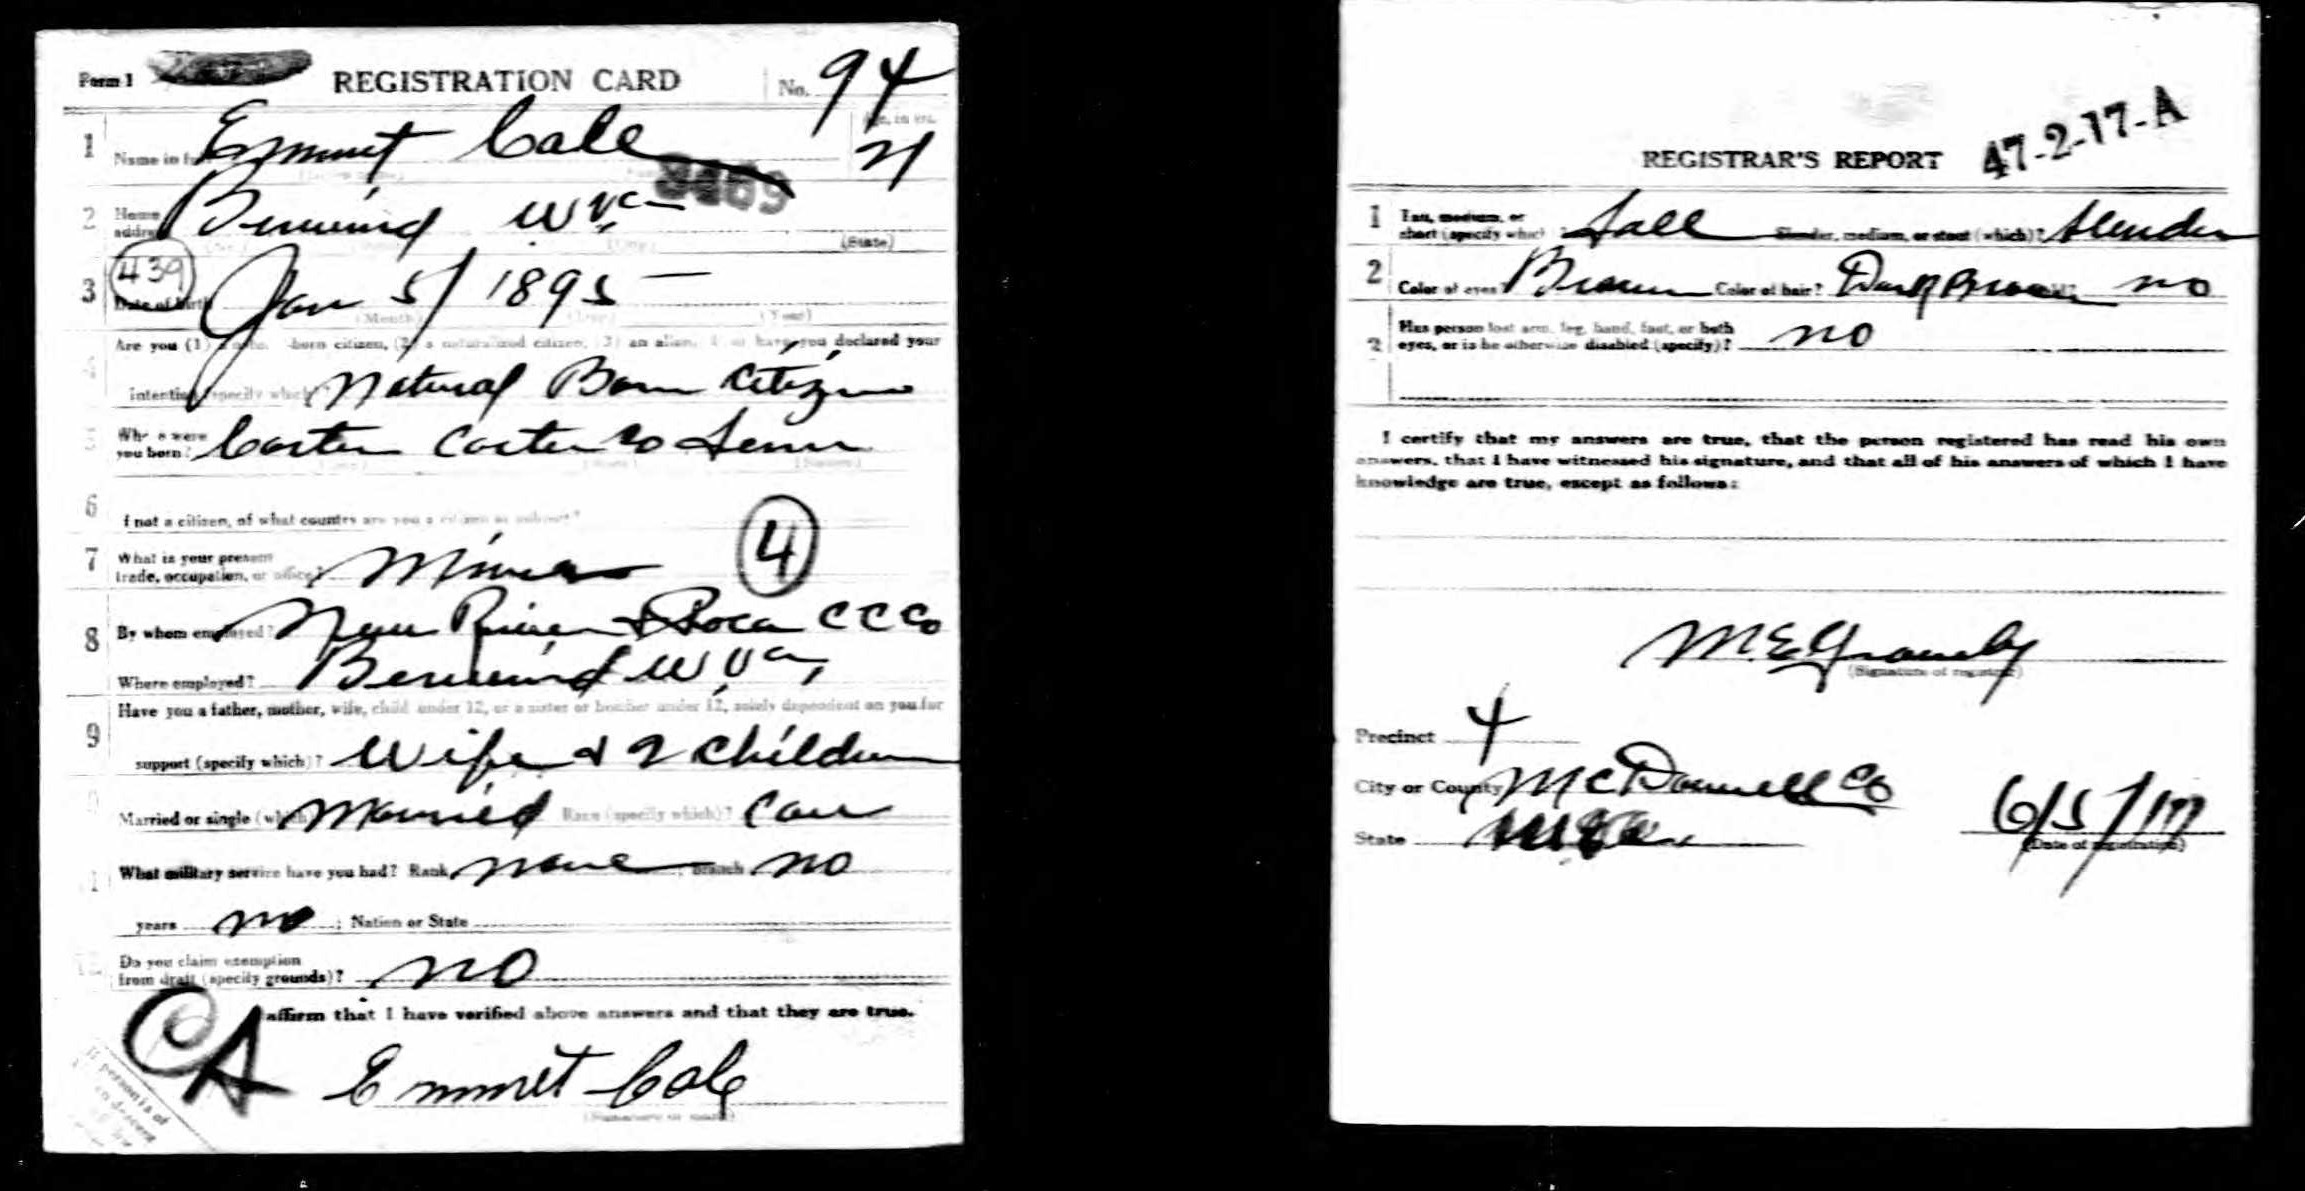 Form 1 REGISTRATION CARD No. 94
1 Name in full Emmet Cale Age, in yrs. 21
2 Home address Berwind W Va
(State)
439
3 Date of birth Jan 5/ 1895
(Month) (Day) (Year)
Are you (1) a natural-born citizen, (2) a naturalized citizen, (3) an alien, (4) or have you declared your
4 intention (specify which)? Natural Born Citizen
5 Where were you born? Carter Carter Co Tenn
6 If not a citizen, of what country are you a citizen or subject?
7 What is your present trade, occupation, or office? Miner 4
8 By whom employed? New River & Poca C C Co
Where employed? Berwind W Va,
9 Have you a father, mother, wife, child under 12, or a sister or brother under 12, solely dependent on you for
support (specify which)? Wife & 2 Children
Married or single (which)? Married Race (specify which)? Cau
What military service have you had? Rank none ; branch no
years no ; Nation or State
12 Do you claim exemption from draft (specify grounds)? no
I affirm that I have verified above answers and that they are true.
CA
Emmet Cale
(Signature or mark)
If person is of
REGISTRAR'S REPORT 47-2-17-A
1 Tall, medium, or short (specify which)? Tall Slender, medium, or stout (which)? Slender
2 Color of eyes? Brown Color of hair? Dark Brown no
3 Has person lost arm, leg, hand, foot, or both eyes, or is he otherwise disabled (specify)? no
I certify that my answers are true, that the person registered has read his own
answers, that I have witnessed his signature, and that all of his answers of which I have
knowledge are true, except as follows:
(Signature of registrar)
Precinct 4
City or County McDowell Co
State W Va. 6/5/17
(Date of registration)